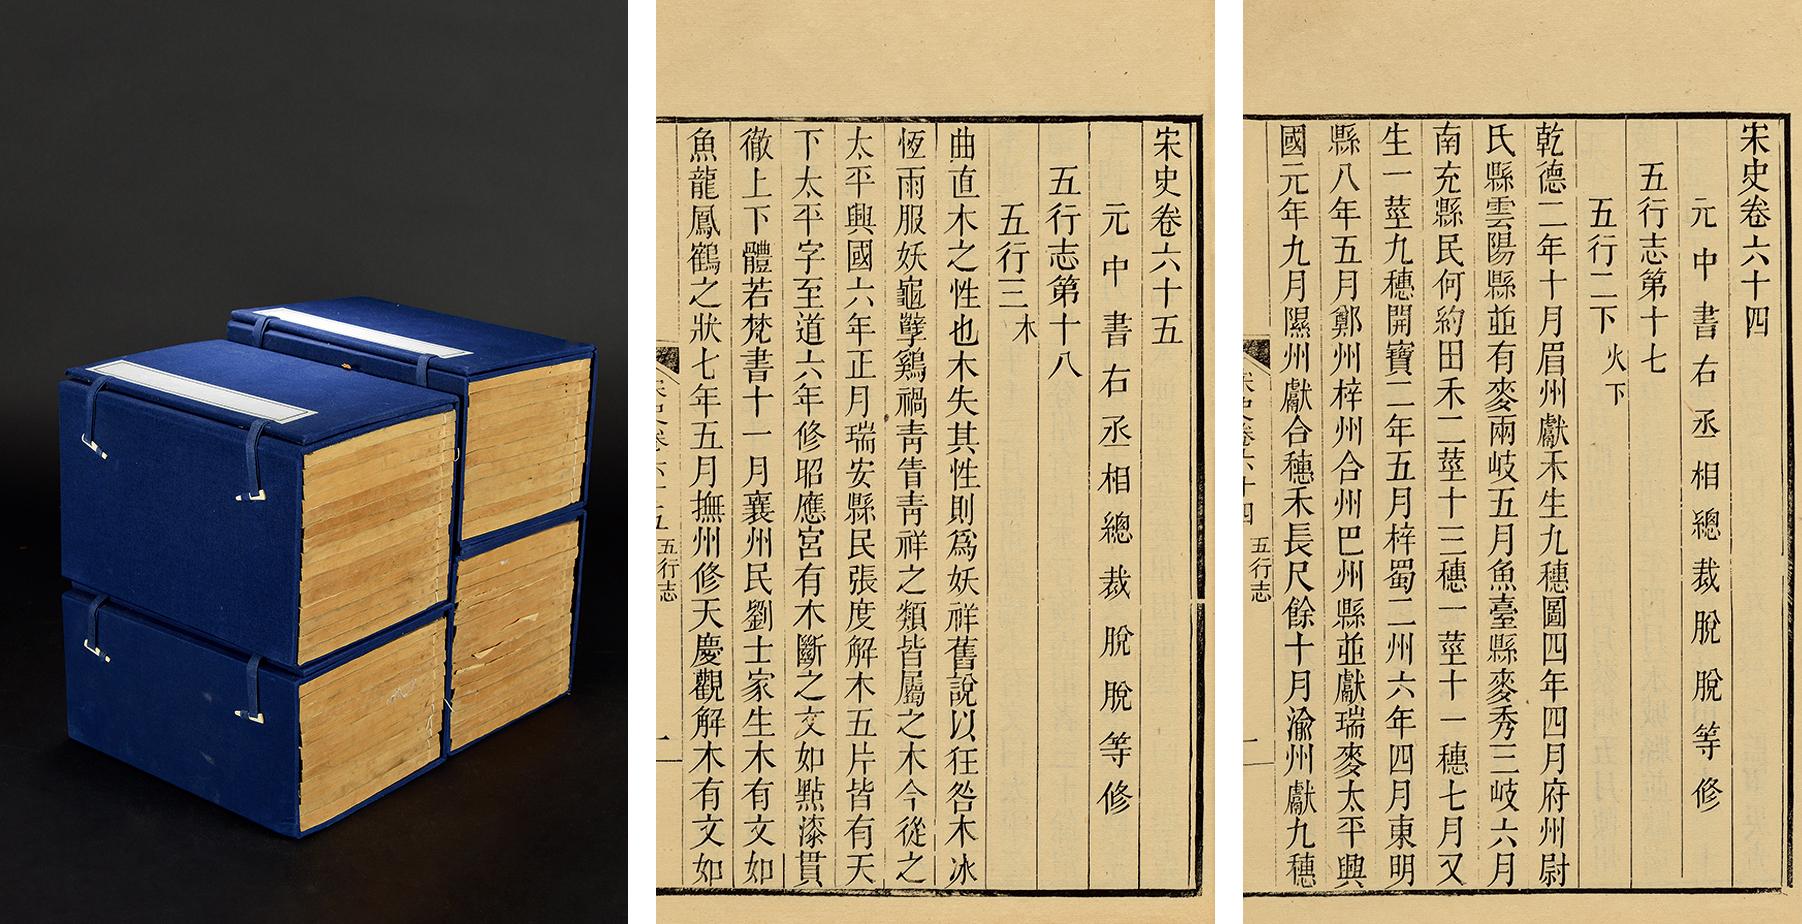 宋史卷六十五
元中書右丞相總裁脫脫等修
五行志第十八
五行三木
曲直木之性也木失其性則為妖祥舊說以狂咎木冰
恆雨服妖龜孽雞禍青眚青祥之類皆屬之木今從之
太平興國六年正月瑞安縣民張度解木五片皆有天
下太平字至道六年修昭應宮有木斷之文如點漆貫
徹上下體若梵書十一月襄州民劉士家生木有文如
魚龍鳳鶴之狀七年五月撫州修天慶觀解木有文如
宋史卷六十五
五行志
一
宋史卷六十四
元中書右丞相總裁脫脫等修
五行志第十七
五行二下火下
乾德二年十月眉州獻禾生九穗圖四年四月府州尉
氏縣雲陽縣並有麥兩岐五月魚臺縣麥秀三岐六月
南充縣民何約田禾二莖十三穗一莖十一穗七月又
生一莖九穗開寶二年五月梓蜀二州六年四月東明
縣八年五月鄭州梓州合州巴州縣並獻瑞麥太平興
國元年九月隰州獻合穗禾長尺餘十月渝州獻九穗
宋史卷六十四
五行志
一